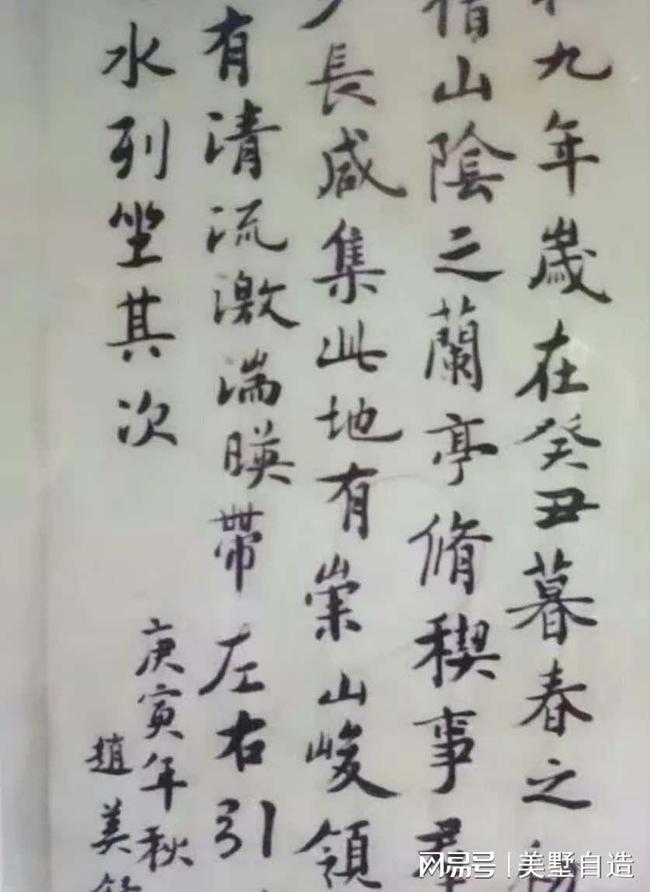 九年歲在癸丑暮春之
山陰之蘭亭脩稧事羣
長咸集此地有崇山峻領
有清流激湍暎帶左右引
水列坐其次
庚寅年秋
趙美
网易号 | 美墅自造